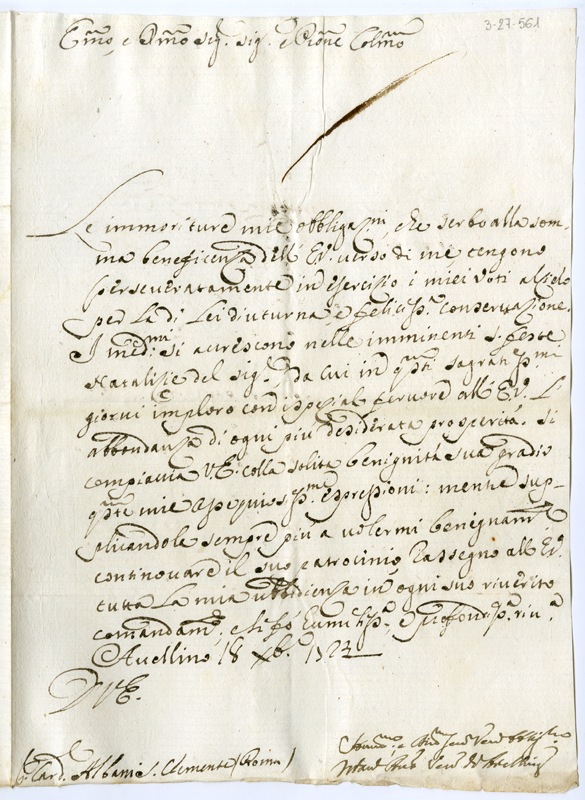 3-27-561
Em̃o, e Rm̃o Sig.r Sig.r e Prone Colmo
Le immoriture mie obbligaz.ni che serbo alla som-
ma beneficenza dell' E.V. verso di me tengono
perseveratamente in esercizio i miei voti al Cielo
per la di Lei diuturna, e felicis.a conservazione.
I med.mi si accrescono nelle imminenti s. feste
Natalizie del Sig.re, da cui in q.sti sagratis.mi
giorni imploro con ispezial fervore all' E.V. L'
abbondanza di ogni più desiderata prosperità. Si
compiaccia V.E. colla solita benignità sua gradir
q.ste mie ossequiosis.me espressioni: mentre sup-
plicandola sempre più a volermi benignam.te
continovare il suo patrocinio, Rassegno all' E.V.
tutta la mia ubbidienza in ogni suo riverito
comandam.to, e Le fò Eumilis.a, e profondis.a riv.a
Avellino 18 Xb.e 1723
D V.E.
Card. Albani S. Clemente (Roma)